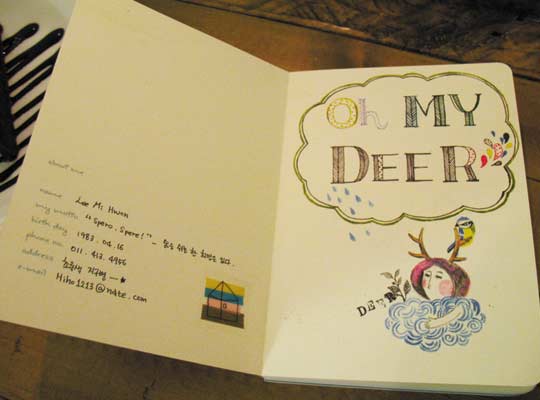 about me
name Lee Mi Hwan
my motto "Spero, Spera!" - 숨을 쉬는 한 희망은 있다.
birth day 1983. 04. 16
phone no. 011. 413. 4956
address 초록별 지구별
e-mail Miho1213@nate.com
Oh MY
DEER
DEER